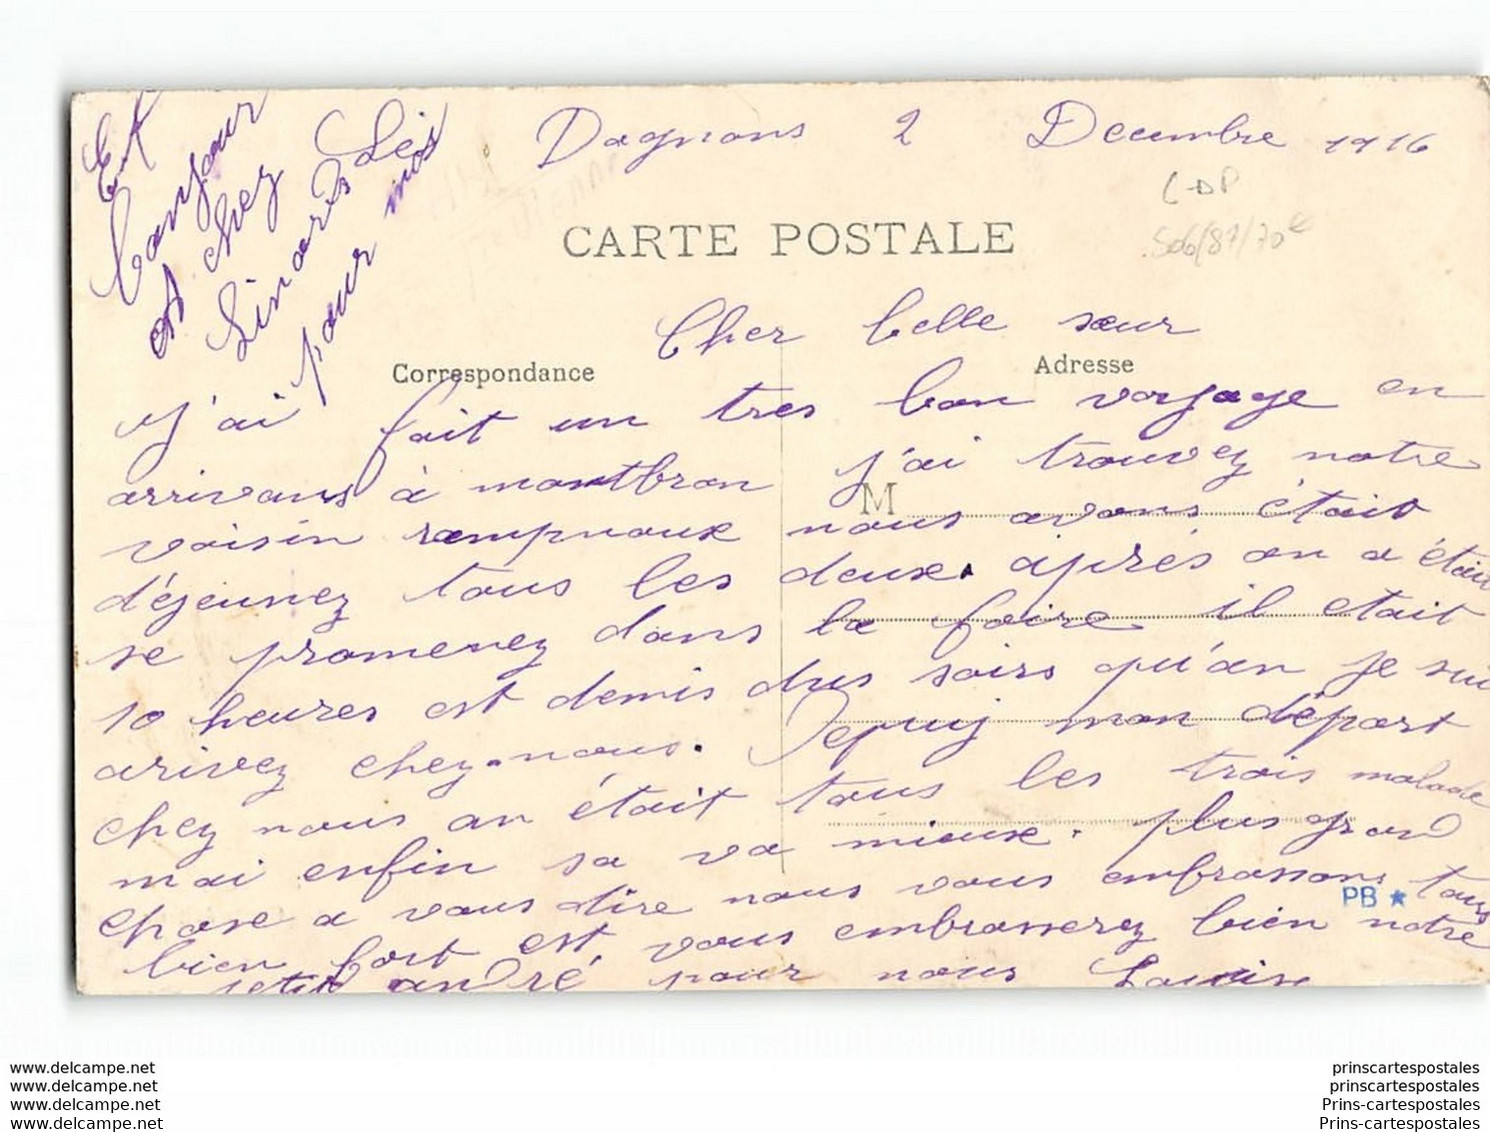 Dagnons 2 Decembre 1916
CARTE POSTALE
Cher belle sœur
Correspondance
Adresse
M
j'ai fait un tres bon voyage en
arrivans à montbron j'ai trouvez notre
voisin rempnoux nous avons était
déjeunez tous les deux. aprés on a étai
se promenez dans la foire il etait
10 heures est demis dus soirs qu'an je sui
arivez chez-nous. Depuis mon départ
chez nous on était tous les trois malade
mai enfin sa va mieux. plus grand
chose a vous dire nous vous embrassons tous
bien fort est vous embrasserez bien notre
petit andré pour nous Louise
Et
bonjour
chez
Linarès
pour nous
CDP
506/87/70€
PB
www.delcampe.net
www.delcampe.net
www.delcampe.net
www.delcampe.net
prinscartespostales
prinscartespostales
Prins-cartespostales
Prins-cartespostales